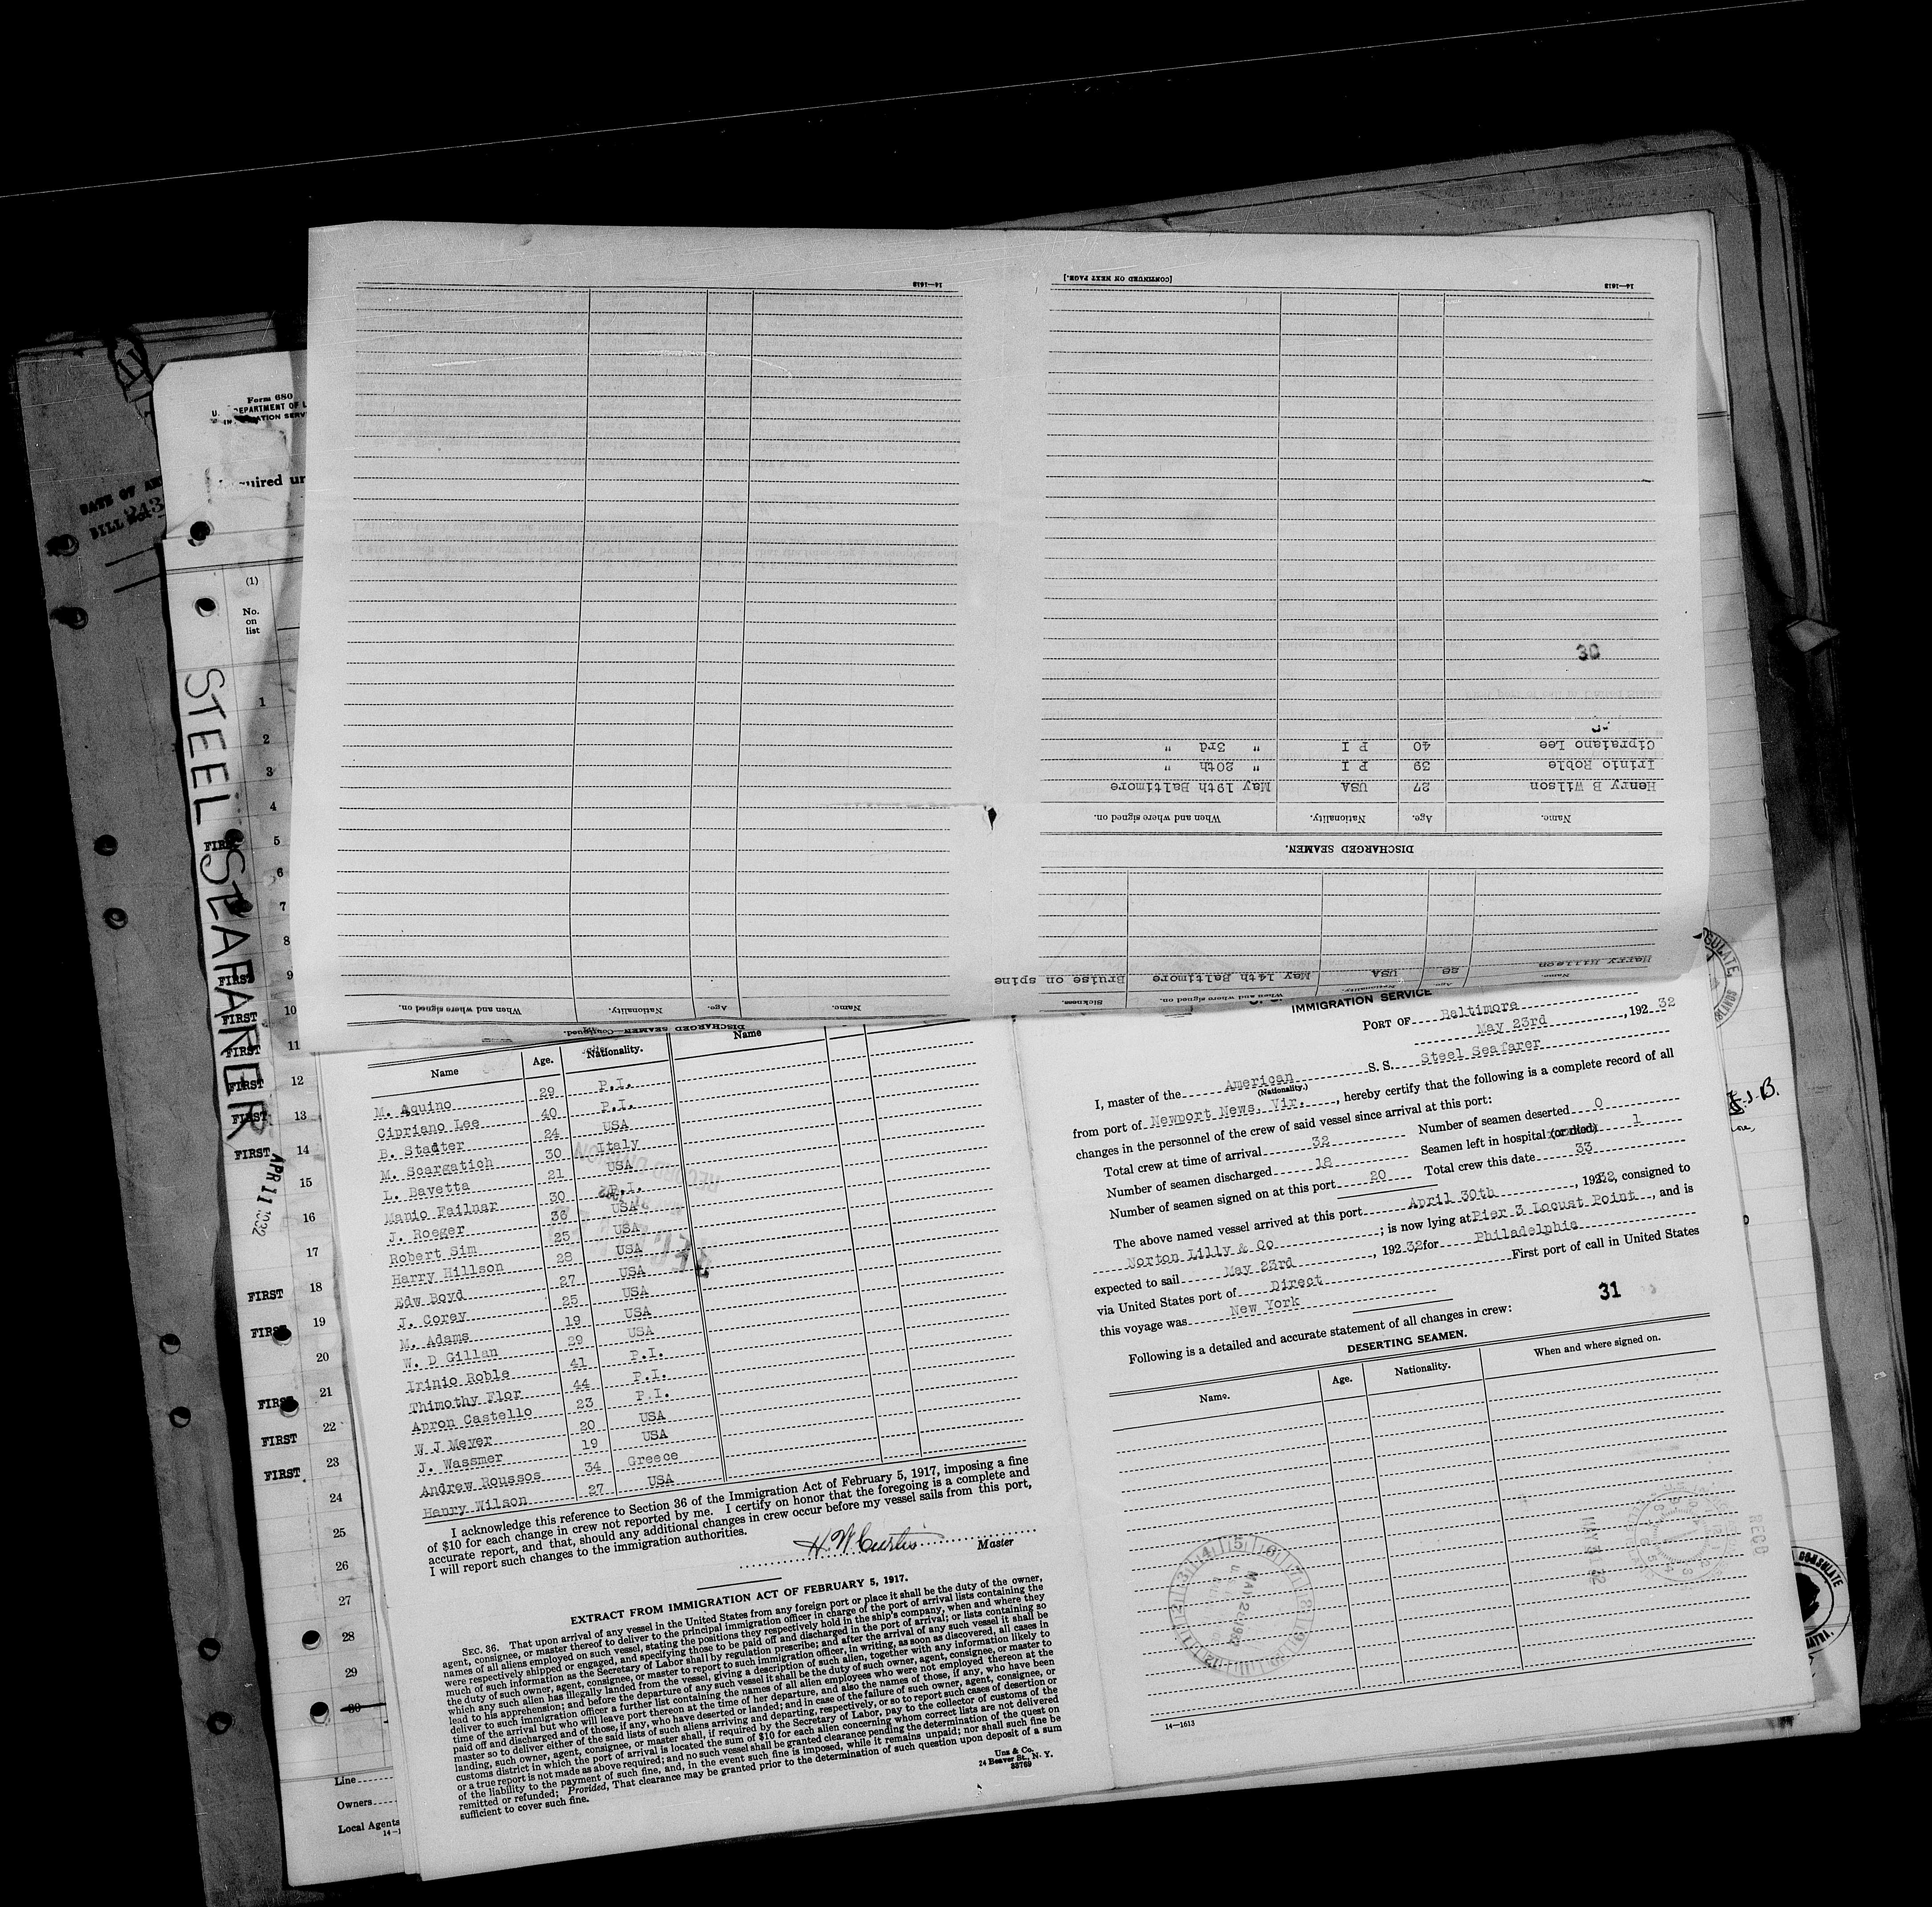 Form 680
U. DEPARTMENT OF L
IMMIGRATION SERV
quired un
BILL
(1)
No.
on
list
STEEL SEAFARER
APR 11 1932
1
2
3
4
FIRST 5
6
7
8
FIRST 9
FIRST 10
FIRST 11
FIRST 12
FIRST 13
FIRST 14
15
16
17
FIRST 18
FIRST 19
20
FIRST 21
FIRST 22
FIRST 23
24
25
26
27
28
29
30
Line
Owners
Local Agents
14-1
[CONTINUED ON NEXT PAGE.]
14—1613
14—1613
30
Cipraiano Lee 40 P I " 3rd "
Irinio Roble 39 P I " 20th "
Henry B Wilson 27 USA May 19th Baltimore
Name. Age. Nationality. When and where signed on.
DISCHARGED SEAMEN.
Harry Hillson 28 USA May 14th Baltimore Bruise on spine
Name. Age. Nationality. When and where signed on. Sickness.
Name. Age. Nationality. When and where signed on.
DISCHARGED SEAMEN—Continued.
Name Age. Nationality. Name
M. Aquino 29 P.I.
Cipriano Lee 40 P.I.
B. Stadter 24 USA
M. Scargatich 30 Italy
L. Bavetta 21 USA
Manio Failnar 30 P.I.
J. Roeger 36 USA
Robert Sim 25 USA
Harry Hillson 28 USA
Edw Boyd 27 USA
J. Corey 25 USA
M. Adams 19 USA
W. D Gillan 29 USA
Irinio Roble 41 P.I.
Thimothy Flor 44 P.I.
Apron Castello 23 P.I.
W J Meyer 20 USA
J. Wassmer 19 USA
Andrew Roussos 34 Greece
Henry Wilson 27 USA
I acknowledge this reference to Section 36 of the Immigration Act of February 5, 1917, imposing a fine
of $10 for each change in crew not reported by me. I certify on honor that the foregoing is a complete and
accurate report, and that, should any additional changes in crew occur before my vessel sails from this port,
I will report such changes to the immigration authorities.
H. W Curtis Master
EXTRACT FROM IMMIGRATION ACT OF FEBRUARY 5, 1917.
SEC. 36. That upon arrival of any vessel in the United States from any foreign port or place it shall be the duty of the owner,
agent, consignee, or master thereof to deliver to the principal immigration officer in charge of the port of arrival lists containing the
names of all aliens employed on such vessel, stating the positions they respectively hold in the ship's company, when and where they
were respectively shipped or engaged, and specifying those to be paid off and discharged in the port of arrival; or lists containing so
much of such information as the Secretary of Labor shall by regulation prescribe; and after the arrival of any such vessel it shall be
the duty of such owner, agent, consignee, or master to report to such immigration officer, in writing, as soon as discovered, all cases in
which any such alien has illegally landed from the vessel, giving a description of such alien, together with any information likely to
lead to his apprehension; and before the departure of any such vessel it shall be the duty of such owner, agent, consignee, or master to
deliver to such immigration officer a further list containing the names of all alien employees who were not employed thereon at the
time of the arrival but who will leave port thereon at the time of her departure, and also the names of those, if any, who have been
paid off and discharged and of those, if any, who have deserted or landed; and in case of the failure of such owner, agent, consignee, or
master so to deliver either of the said lists of such aliens arriving and departing, respectively, or so to report such cases of desertion or
landing, such owner, agent, consignee, or master shall, if required by the Secretary of Labor, pay to the collector of customs of the
customs district in which the port of arrival is located the sum of $10 for each alien concerning whom correct lists are not delivered
or a true report is not made as above required; and no such vessel shall be granted clearance pending the determination of the question
of the liability to the payment of such fine, and, in the event such fine is imposed, while it remains unpaid; nor shall such fine be
remitted or refunded; Provided, That clearance may be granted prior to the determination of such question upon deposit of a sum
sufficient to cover such fine.
Unz & Co.
24 Beaver St., N. Y.
33769
IMMIGRATION SERVICE
PORT OF Baltimore
May 23rd, 192 32
I, master of the American S. S. Steel Seafarer
(Nationality.)
from port of Newport News. Vir., hereby certify that the following is a complete record of all
changes in the personnel of the crew of said vessel since arrival at this port:
Total crew at time of arrival 32 Number of seamen deserted 0
Number of seamen discharged 18 Seamen left in hospital (or died) 1
Number of seamen signed on at this port 20 Total crew this date 33
The above named vessel arrived at this port April 30th, 192 32, consigned to
Norton Lilly & Co; is now lying at Pier 3 Locust Point, and is
expected to sail May 23rd, 192 32 for Philadelphia
via United States port of Direct First port of call in United States
this voyage was New York
31
Following is a detailed and accurate statement of all changes in crew:
DESERTING SEAMEN.
Name. Age. Nationality. When and where signed on.
MAY 31 '32
RECD
14—1613
CONSULATE